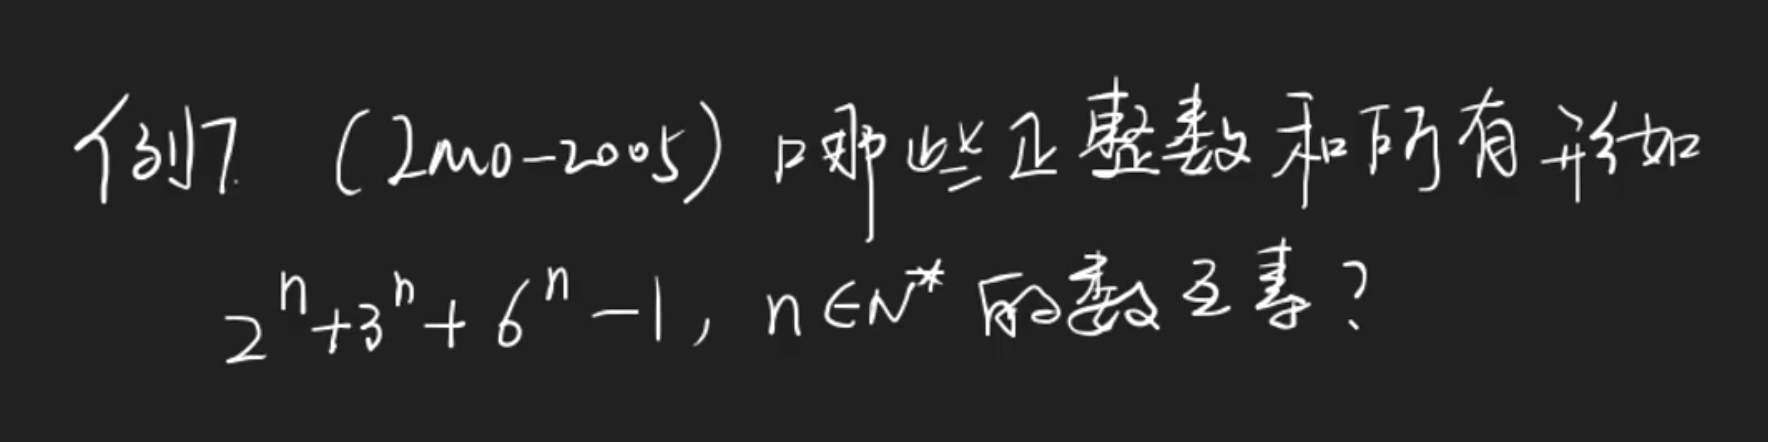 例7. (IMO-2005) 哪些正整数和所有形如
2^n+3^n+6^n-1, n∈N* 的数互素?